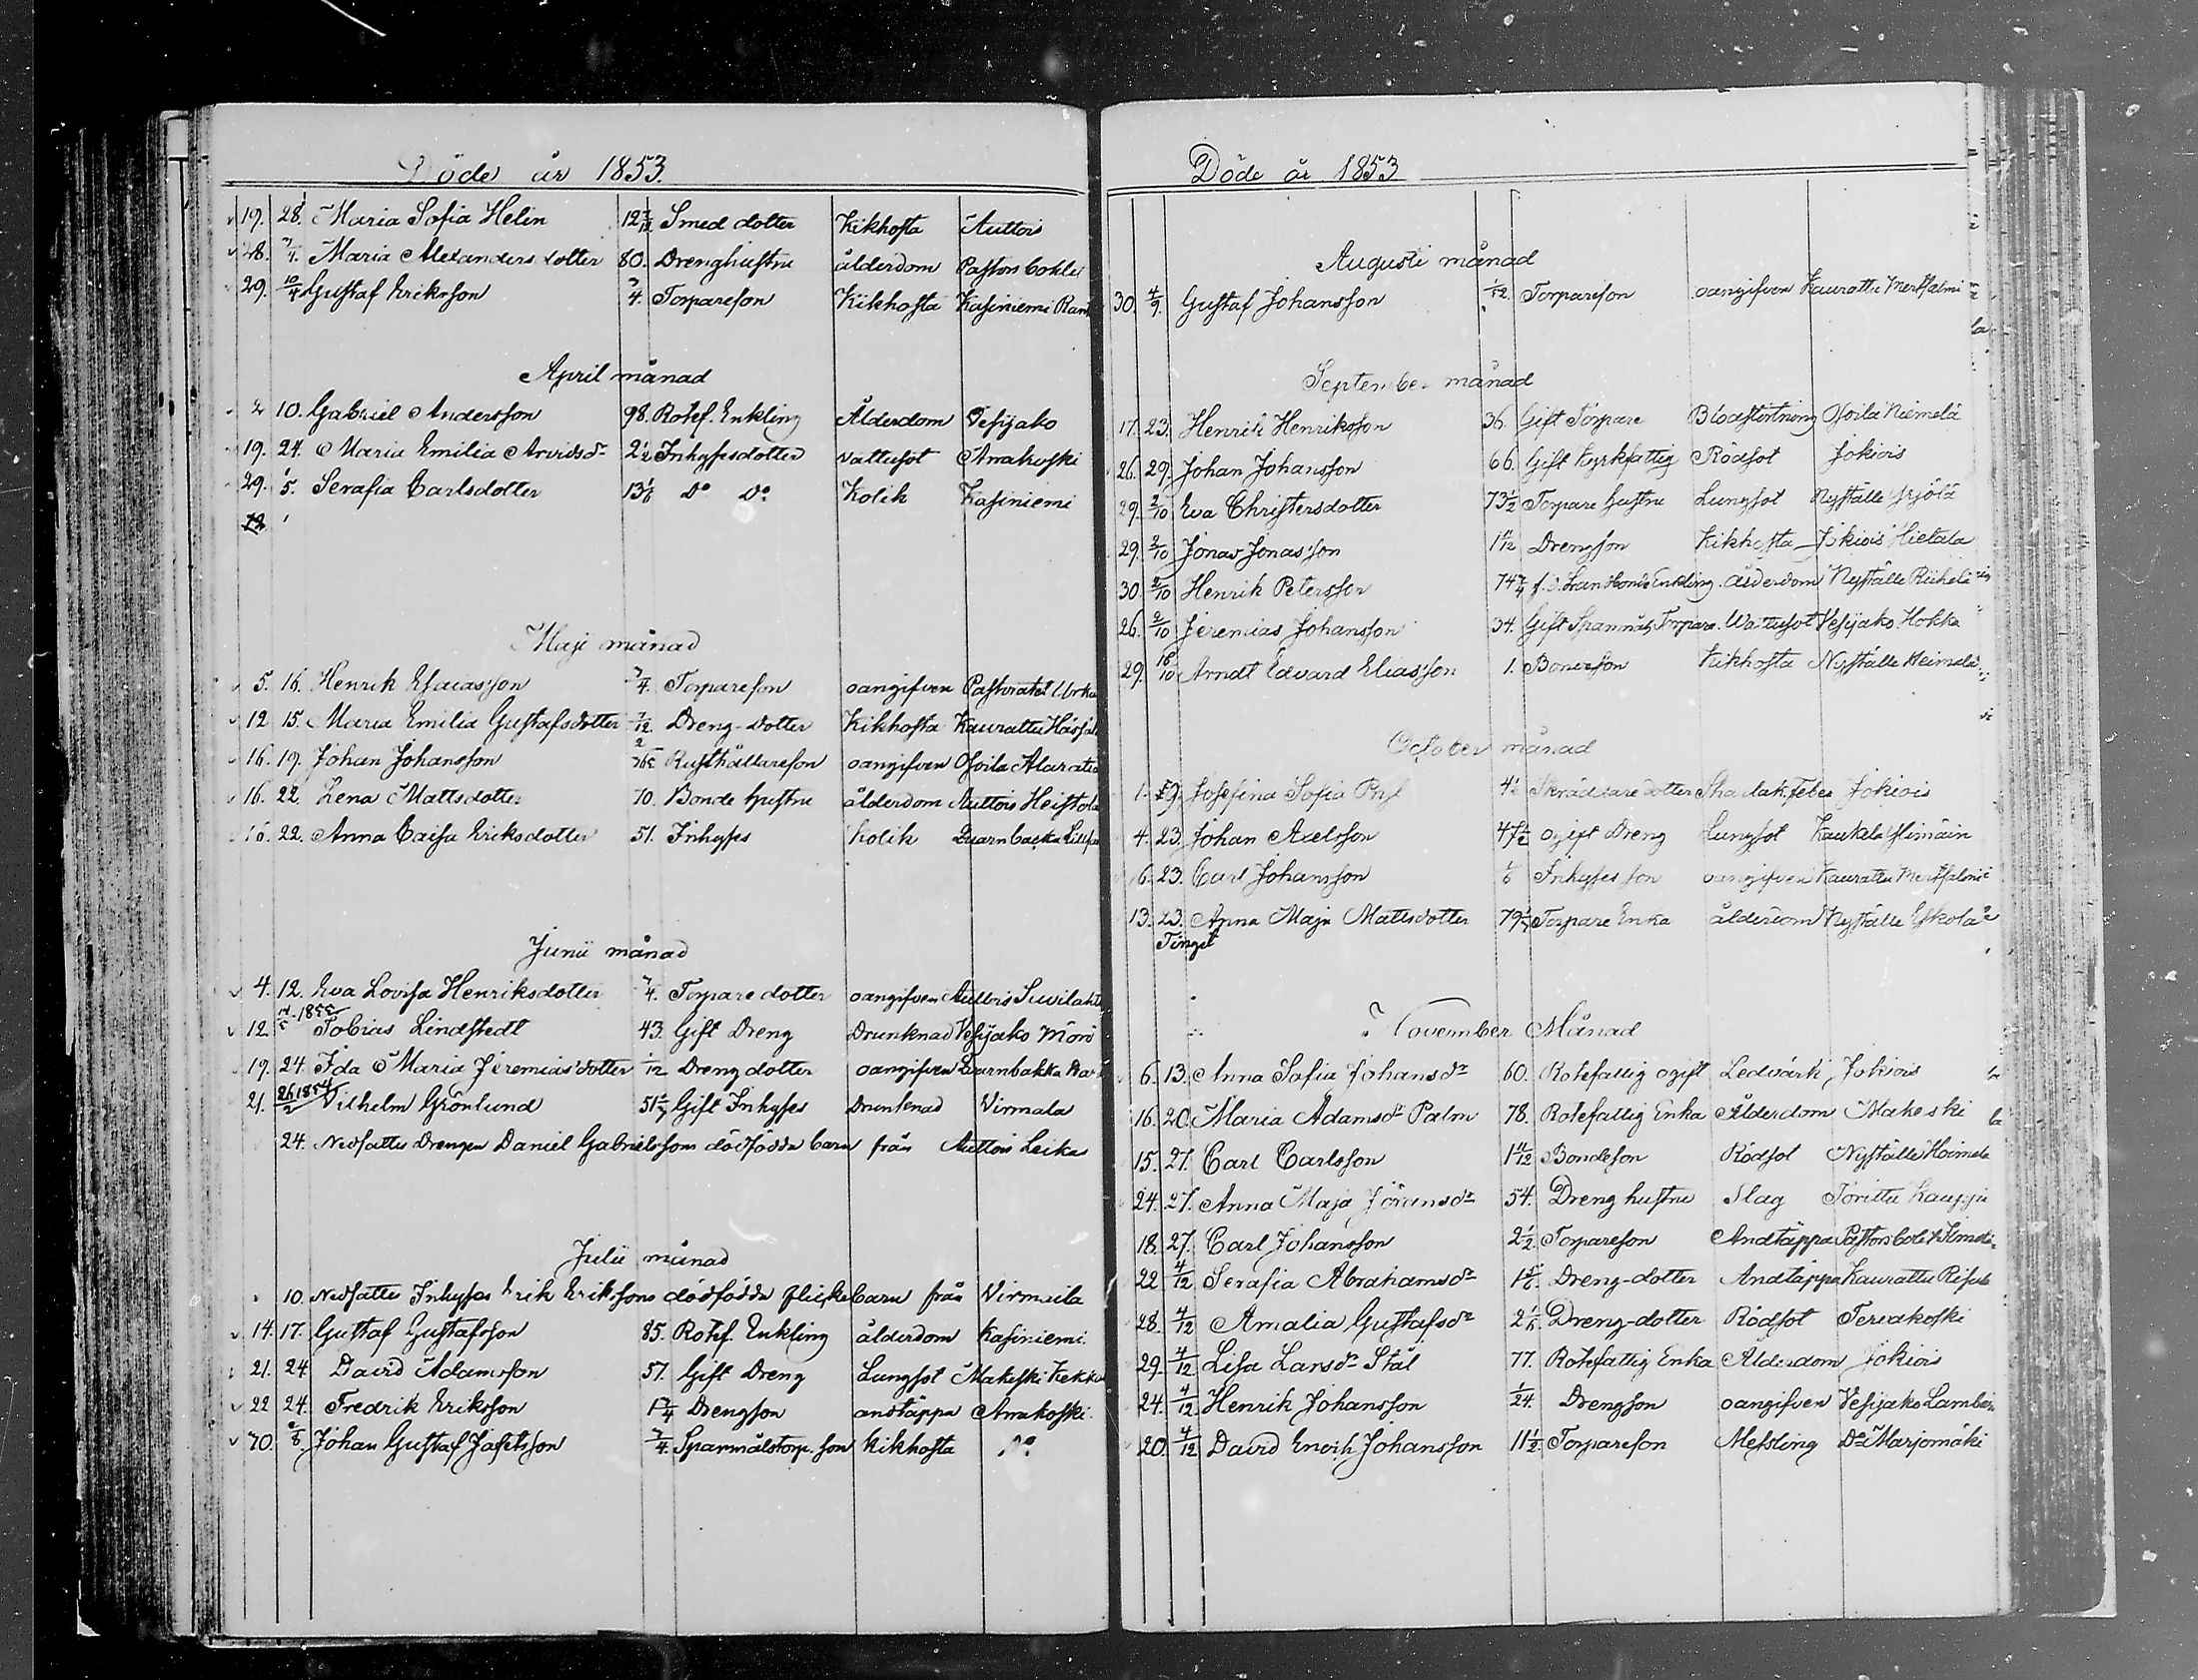 Döde år 1853.
19. 28. Maria Sofia Helin 12 Smed dotter Kikhosta Auttois
28. Maria Alexanders dotter 80. Drenghustru ålderdom Pastors
29. 10/4 Gustaf Eriksson 3/4. Torpareson Kikhosta Kasiniemi
April månad
2 10. Gabriel Andersson 98. Rotef. Enkling Ålderdom Vesijako
19. 24. Maria Emilia Arvidsdr 2 1/2 Inhysesdotter vattusot Arrakoski
29. 5. Serafia Carlsdotter 13 1/6 Do Do Kolik Kasiniemi
Maji månad
5. 16. Henrik Esaiasson 3/4. Torpareson oangifven Pastoratet
12 15. Maria Emilia Gustafsdotter 7/12 Dreng-dotter Kikhosta Kaurattu
16. 19. Johan Johansson 2/365 Rusthållareson oangifven Osoila
16. 22. Lena Mattsdotter 70. Bonde hustru ålderdom Auttois Heistola
16. 22. Anna Caisa Eriksdotter 51. Inhyses Kolik Quarnbacka
Junii månad
4. 12. Eva Lovisa Henriksdotter 3/4. Torpare dotter oangifven Auttois Suvilahti
12. Tobias Lindstedt 43. Gift Dreng Drunknad Vesijako
19. 24. Ida Maria Jeremiasdotter 1/12 Dreng dotter oangifven Quarnbakka
21. 26/2 1854 Vilhelm Grönlund 51 1/2 Gift Inhyses Drunknad Virmala
24. Nedsattes Drengen Daniel Gabrielssons dödfödda barn från Auttois Leika
Julii månad
10. Nedsattes Inhyses Erik Erikssons dödfödda flickebarn från Virmaila
14. 17. Gustaf Gustafsson 85. Rotef. Enkling ålderdom Kasiniemi
21. 24 David Adamsson 57. Gift Dreng Lungsot Makeski
22 24. Fredrik Eriksson 1 3/4 Drengson andtäppa Arrakoski
30. Johan Gustaf Jafetsson 3/4. Spanmålstorp. son Kikhosta Do
Döde år 1853
Augusti månad
30. 4/9. Gustaf Johansson 1/12 Torpareson oangifven Kaurattu Mertsalmi
September månad
17. 23. Henrik Henriksson 36. Gift Torpare Blodstörtning Osoila Niemelä
26. 29. Johan Johansson 66. Gift Kyrkfattig Rödsot Jokiois
29. 2/10 Eva Christersdotter 73 1/2 Torpare hustru Lungsot Nyställe Yrjölä
29. 2/10 Jonas Jonasson 1 11/12 Drengson Kikhosta Jokiois Hietala
30. 2/10 Henrik Petersson 74 3/4 f.d. Enkling ålderdom Nyställe
26. 2/10 Jeremias Johansson 34. Gift Spanmåls Torpare Wattusot Vesijako Hokka
29. 16/10 Arndt Edvard Eliasson 1. Boneson Kikhosta Nyställe Heimela
October månad
1. 9. Josefina Sofia 4 1/2 Skräddare dotter Sharlakfeber Jokiois
4. 23. Johan Axelsson 47 1/2 ogift Dreng Lungsot Kaukela
6. 23. Carl Johansson 1/6 Inhyses son oangifven Kaurattu Mertsalmi
13. 23. Anna Maja Mattsdotter 79 1/2 Torpare Enka ålderdom Nyställe Eskola
Tinget
November Månad
6. 13. Anna Safia Johansdr 60. Rotefattig ogift Ledvärk Jokiois
16. 20. Maria Adamsdr Palm 78. Rotefattig Enka Ålderdom Makeski
15. 27. Carl Carlsson 1 11/12 Bondeson Rödsot Nyställe Heimela
24. 27. Anna Maja Jöransdr 54. Dreng hustru Slag Torittu Kauppi
18. 27. Carl Johansson 2 1/2. Torpareson Andtäppa Pastors
22 4/12 Serafia Abrahamsdr Dreng-dotter Andtäppa Kaurattu
28. 4/12 Amalia Gustafsdr 2 1/6. Dreng-dotter Rödsot Tervakoski
29. 4/12 Lisa Larsdr Stål 77. Rotefattig Enka Ålderdom Jokiois
24. 4/12. Henrik Johansson 1/24. Drengson oangifven Vesijako
20. 4/12 David Enoch Johansson 11 1/2 Torpareson Messling Do Marjomäki